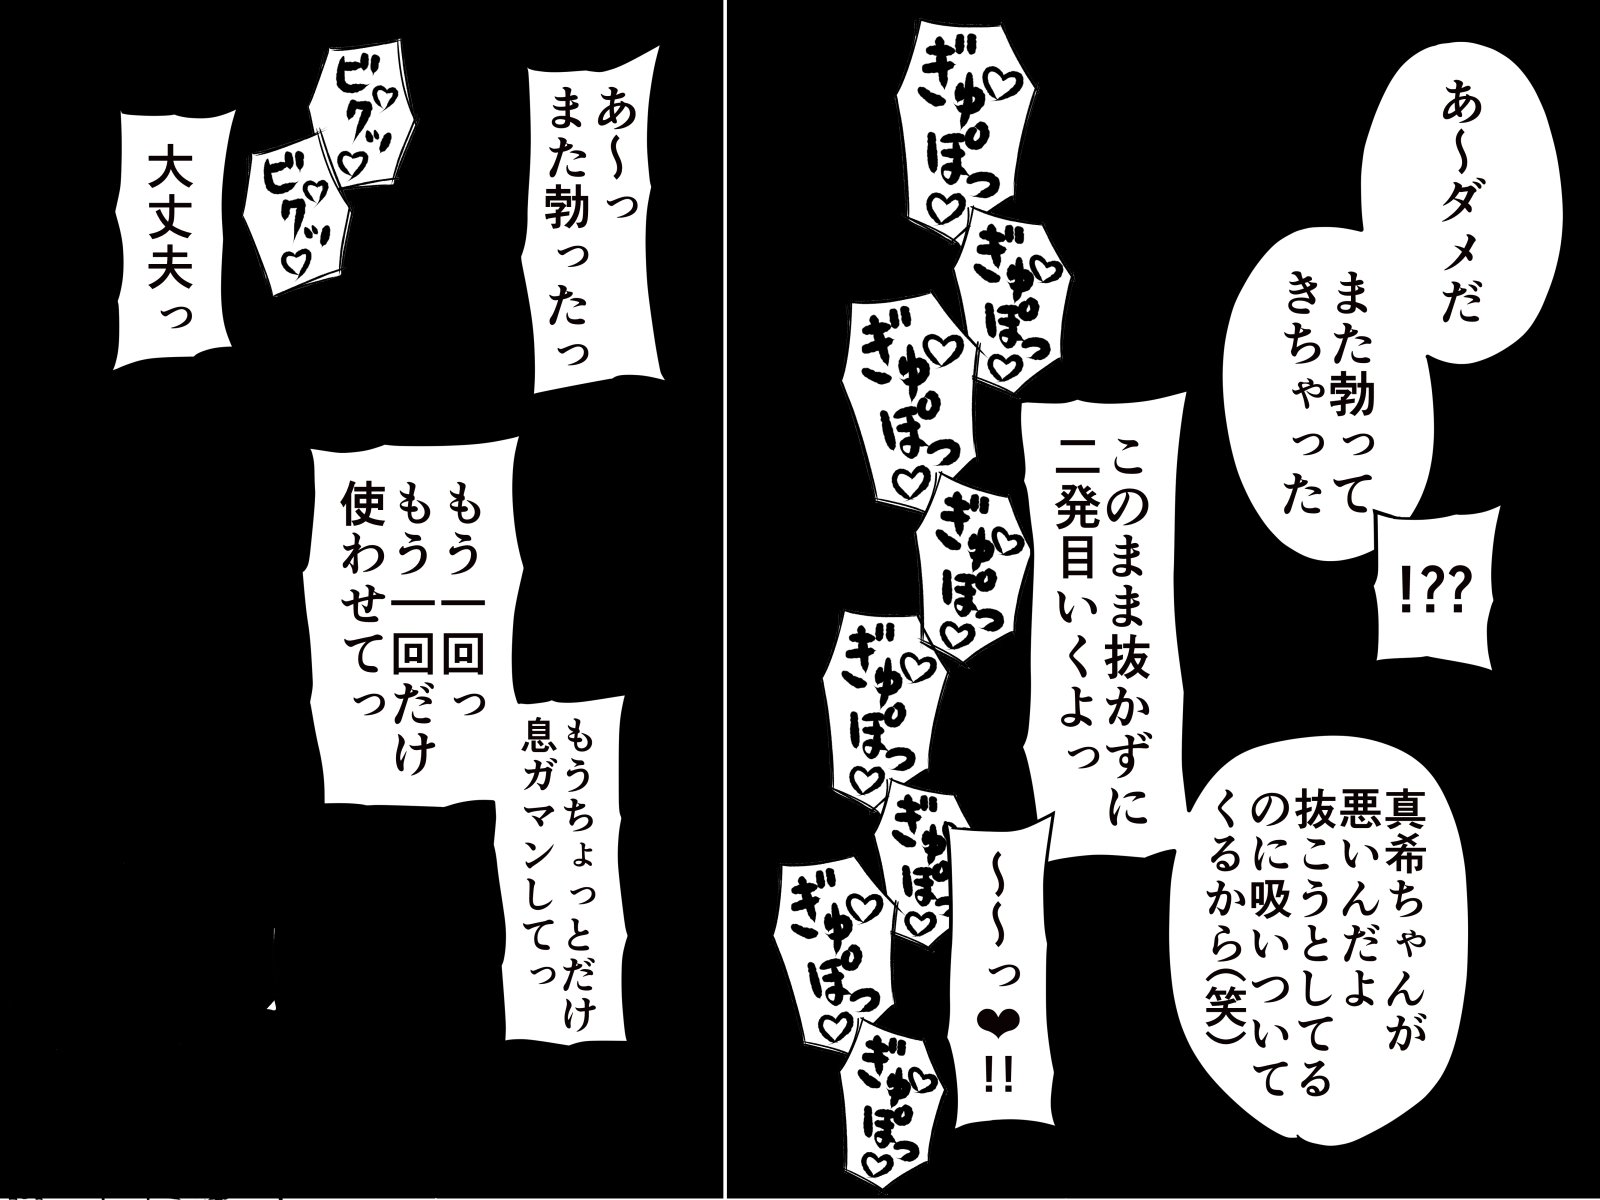 あ～ダメだ
また勃って
きちゃった
!??
このまま抜かずに
二発目いくよっ
真希ちゃんが
悪いんだよ
抜こうとしてる
のに吸いついて
くるから(笑)
～～っ❤!!
ぎゅぽっ♡
ぎゅぽっ♡
ぎゅぽっ♡
ぎゅぽっ♡
ぎゅぽっ♡
ぎゅぽっ♡
ぎゅぽっ♡
ぎゅぽっ♡
あ～っ
また勃ったっ
ビクッ♡
ビクッ♡
大丈夫っ
もう一回っ
もう一回だけ
使わせてっ
もうちょっとだけ
息ガマンしてっ